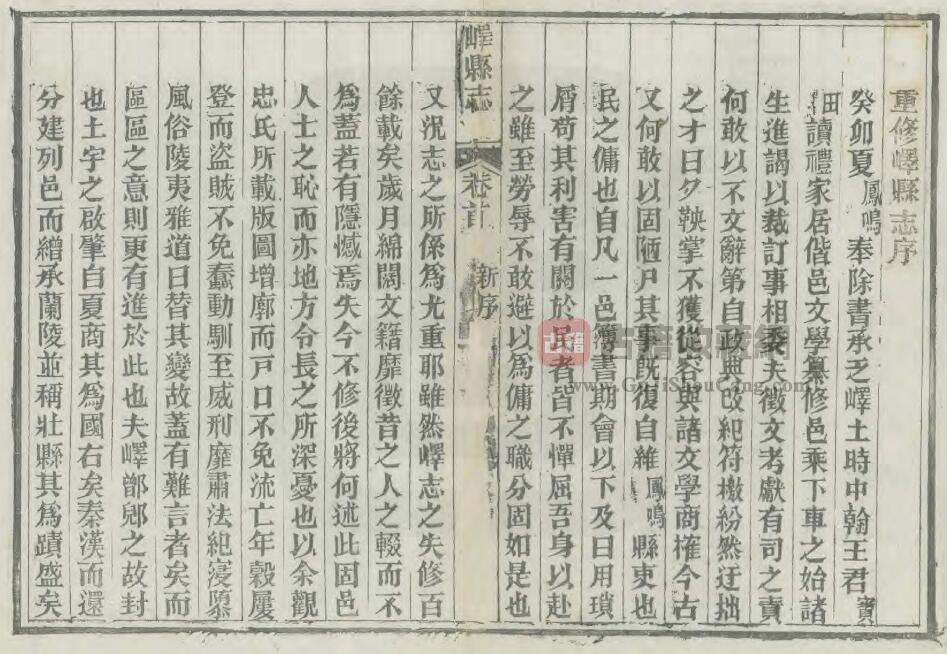 重修嶧縣志序
癸卯夏鳳鳴奉除書承乏嶧土時中翰王君寶
田讀禮家居偕邑文學纂修邑乘下車之始諸
生進謁以裁訂事相委夫徵文考獻有司之責
何敢以不文辭第自政典改紀符檄紛然迂拙
之才日夕鞅掌不獲從容與諸文學商榷今古
又何敢以固陋尸其事旣復自維鳳鳴縣吏也
民之傭也自凡一邑簿書期會以下及日用瑣
屑苟其利害有關於民者皆不憚屈吾身以赴
之雖至勞辱不敢避以爲傭之職分固如是也
嶧縣志 卷首 新序
又況志之所係爲尤重耶雖然嶧志之失修百
餘載矣歲月綿闊文籍靡徵昔之人之輟而不
爲蓋若有隱憾焉失今不修後將何述此固邑
人士之恥而亦地方令長之所深憂也以余觀
忠氏所載版圖增廓而戸口不免流亡年穀屢
登而盜賊不免蠢動馴至威刑靡肅法紀寖隳
風俗陵夷雅道日替其變故蓋有難言者矣而
區區之意則更有進於此也夫嶧鄫郳之故封
也土宇之啟肇自夏商其爲國右矣秦漢而還
分建列邑而繒承蘭陵並稱壯縣其爲蹟盛矣
古籍收藏網
www.GuJiShouCang.com
古籍